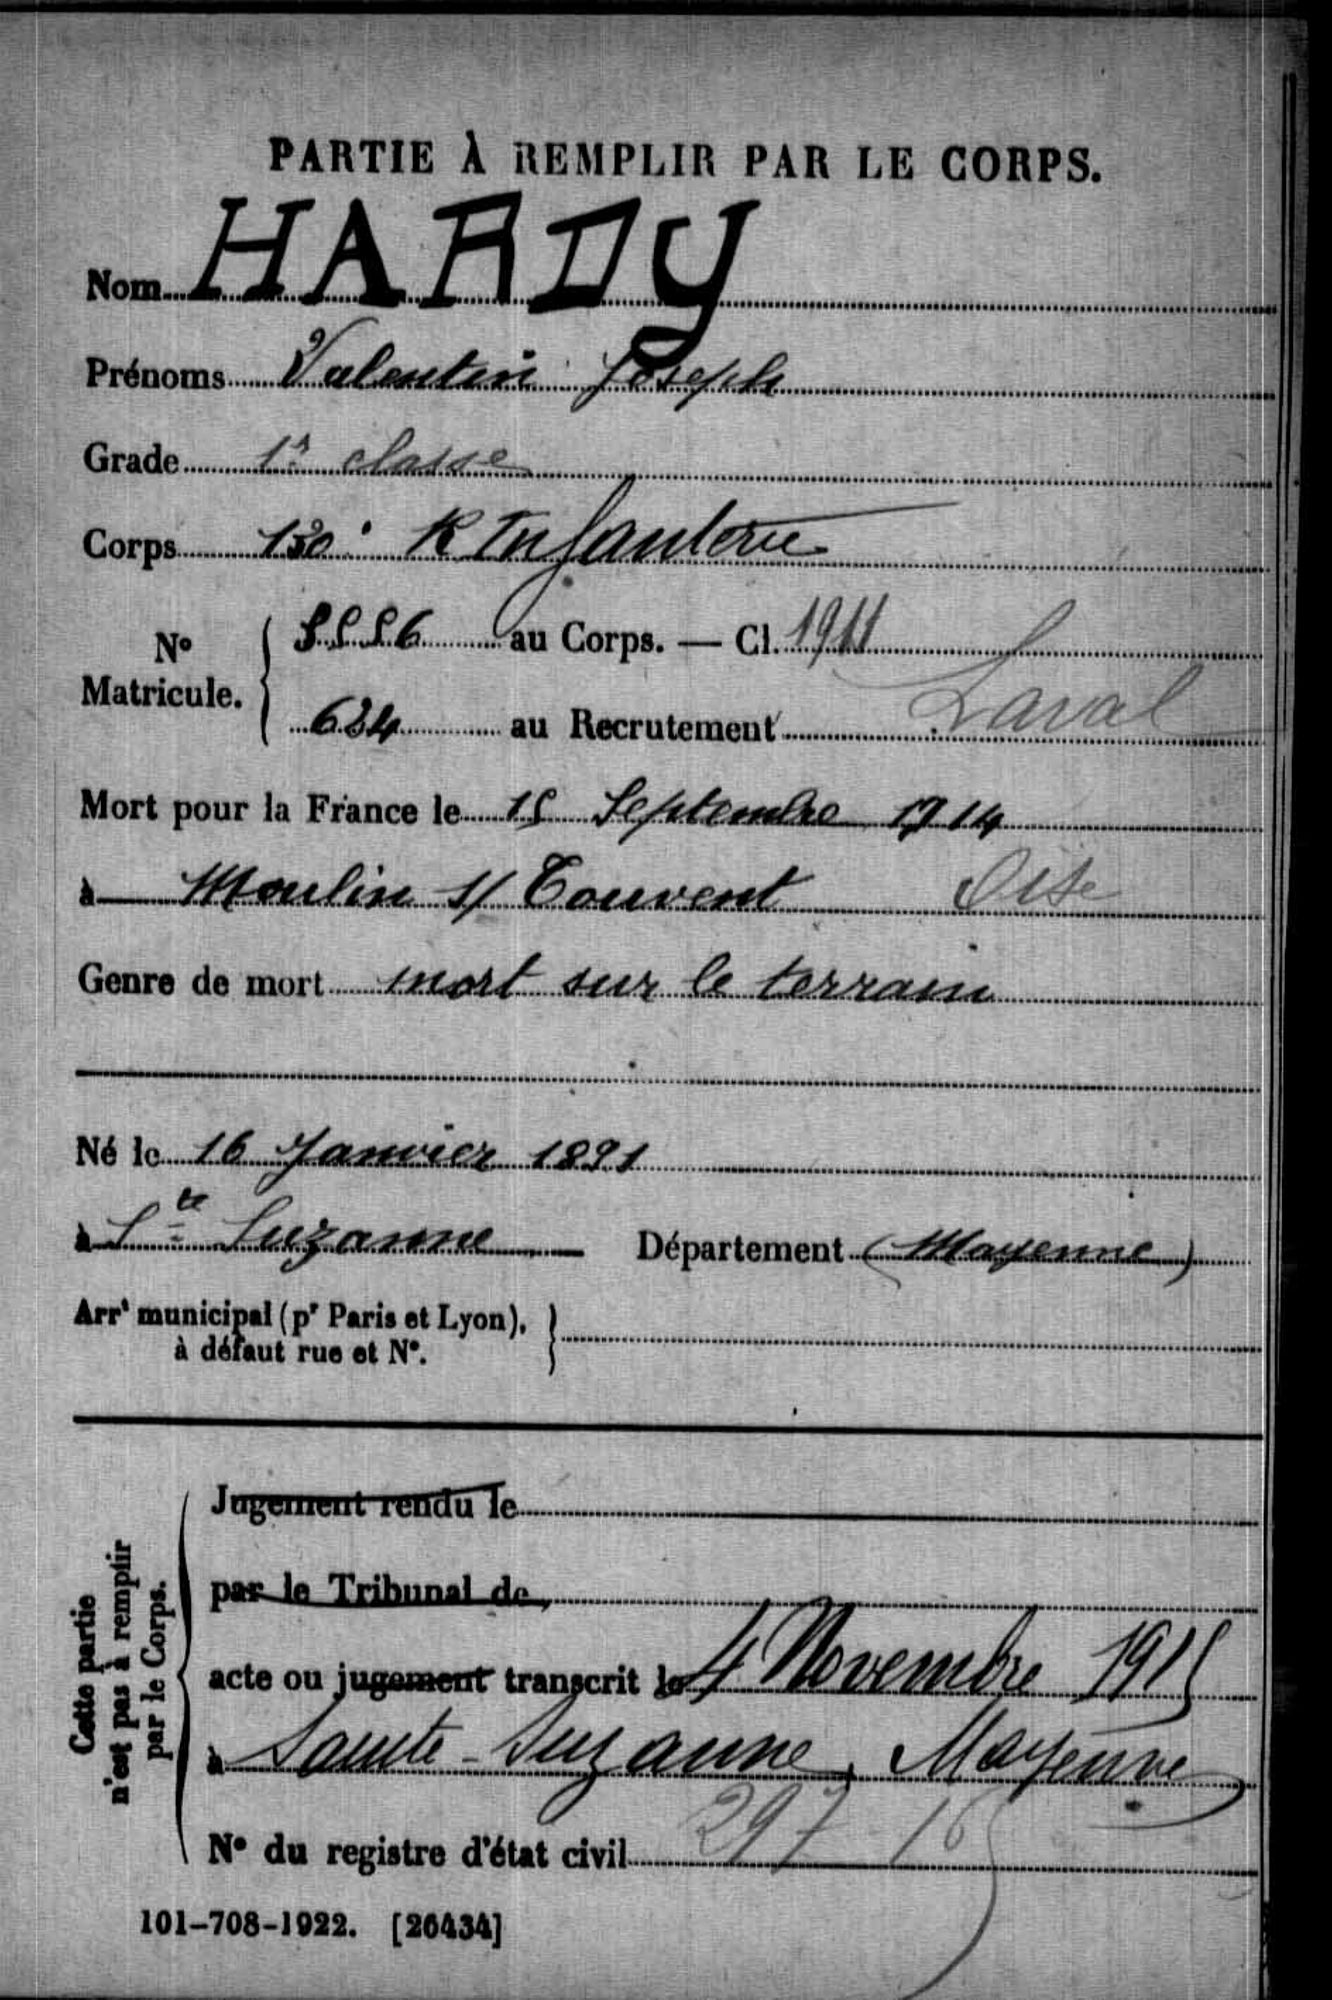 PARTIE À REMPLIR PAR LE CORPS.
Nom HARDY
Prénoms Valentin Joseph
Grade 1r classe
Corps 130e R Infanterie
No Matricule. { 5556 au Corps. — Cl. 1911
634 au Recrutement Laval
Mort pour la France le 15 Septembre 1914
à Moulin s/ Touvent Oise
Genre de mort mort sur le terrain
Né le 16 Janvier 1891
à Ste Suzanne Département (Mayenne)
Arrt municipal (pr Paris et Lyon),
à défaut rue et No.
Cette partie
n'est pas à remplir
par le Corps.
Jugement rendu le
par le Tribunal de
acte ou jugement transcrit le 4 Novembre 1915
à Sainte-Suzanne, Mayenne
No du registre d'état civil 297
101-708-1922. [26434]